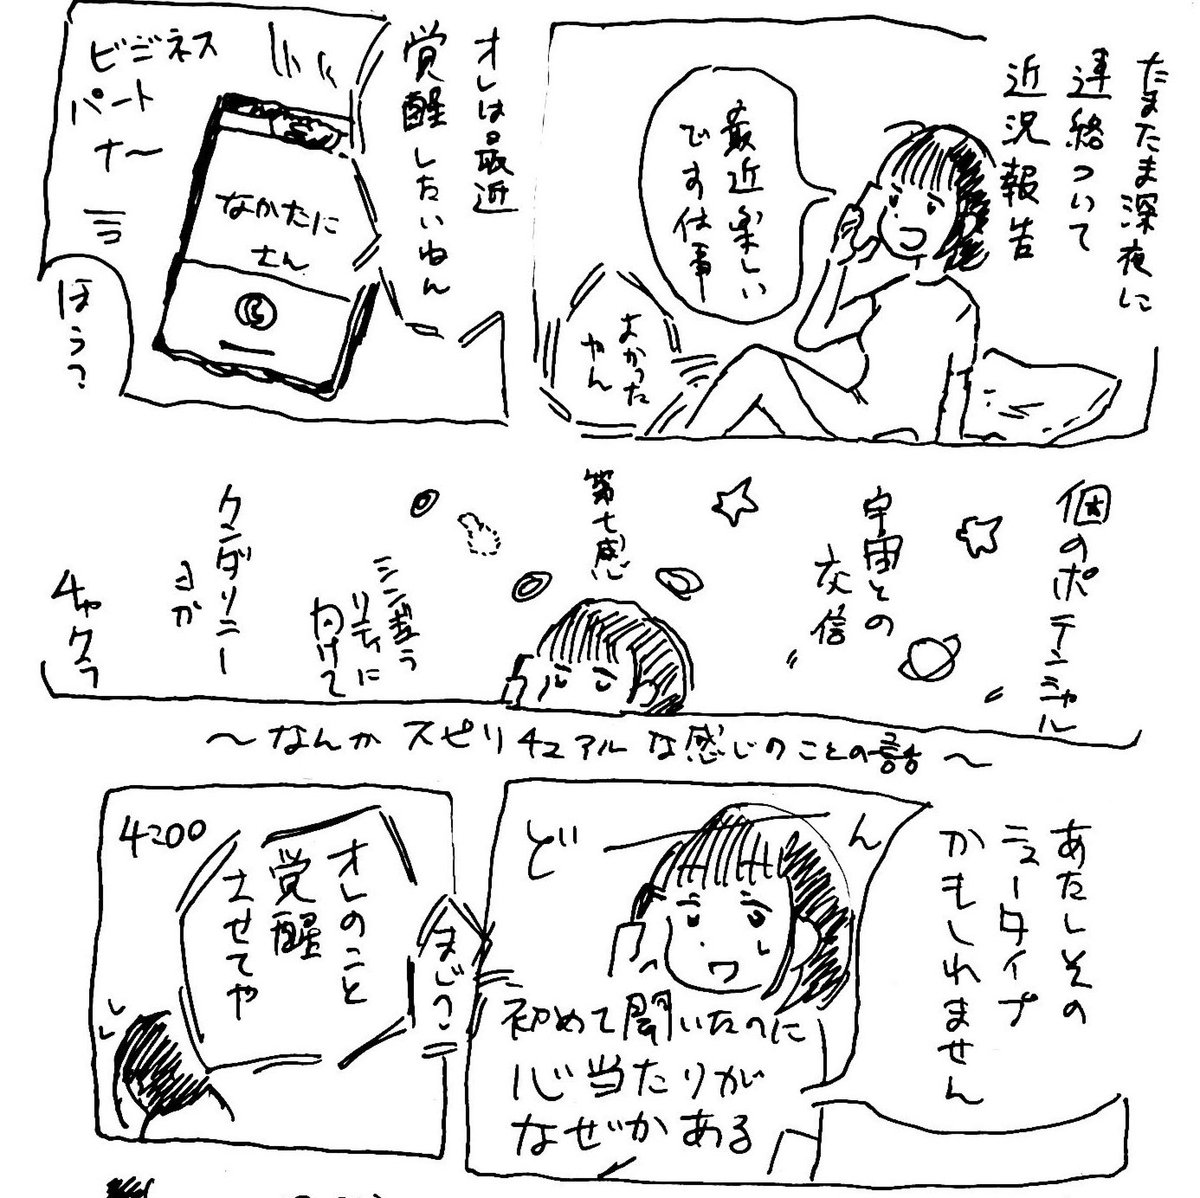 たまたま深夜に
連絡ついて
近況報告
最近楽しい
です仕事
よかった
やん
オレは最近
覚醒したいねん
ビジネス
パート
ナー
なかたに
さん
ほう?
個のポテンシャル
宇宙との
交信
第七感
シンギュラ
リティに
向けて
クンダリニー
とか
チャクラ
〜なんかスピリチュアルな感じのことの話〜
あたしその
ニュータイプ
かもしれません
ど
ん
初めて聞いたのに
心当たりが
なぜかある
まじ?
オレのこと
覚醒
させてや
4:00